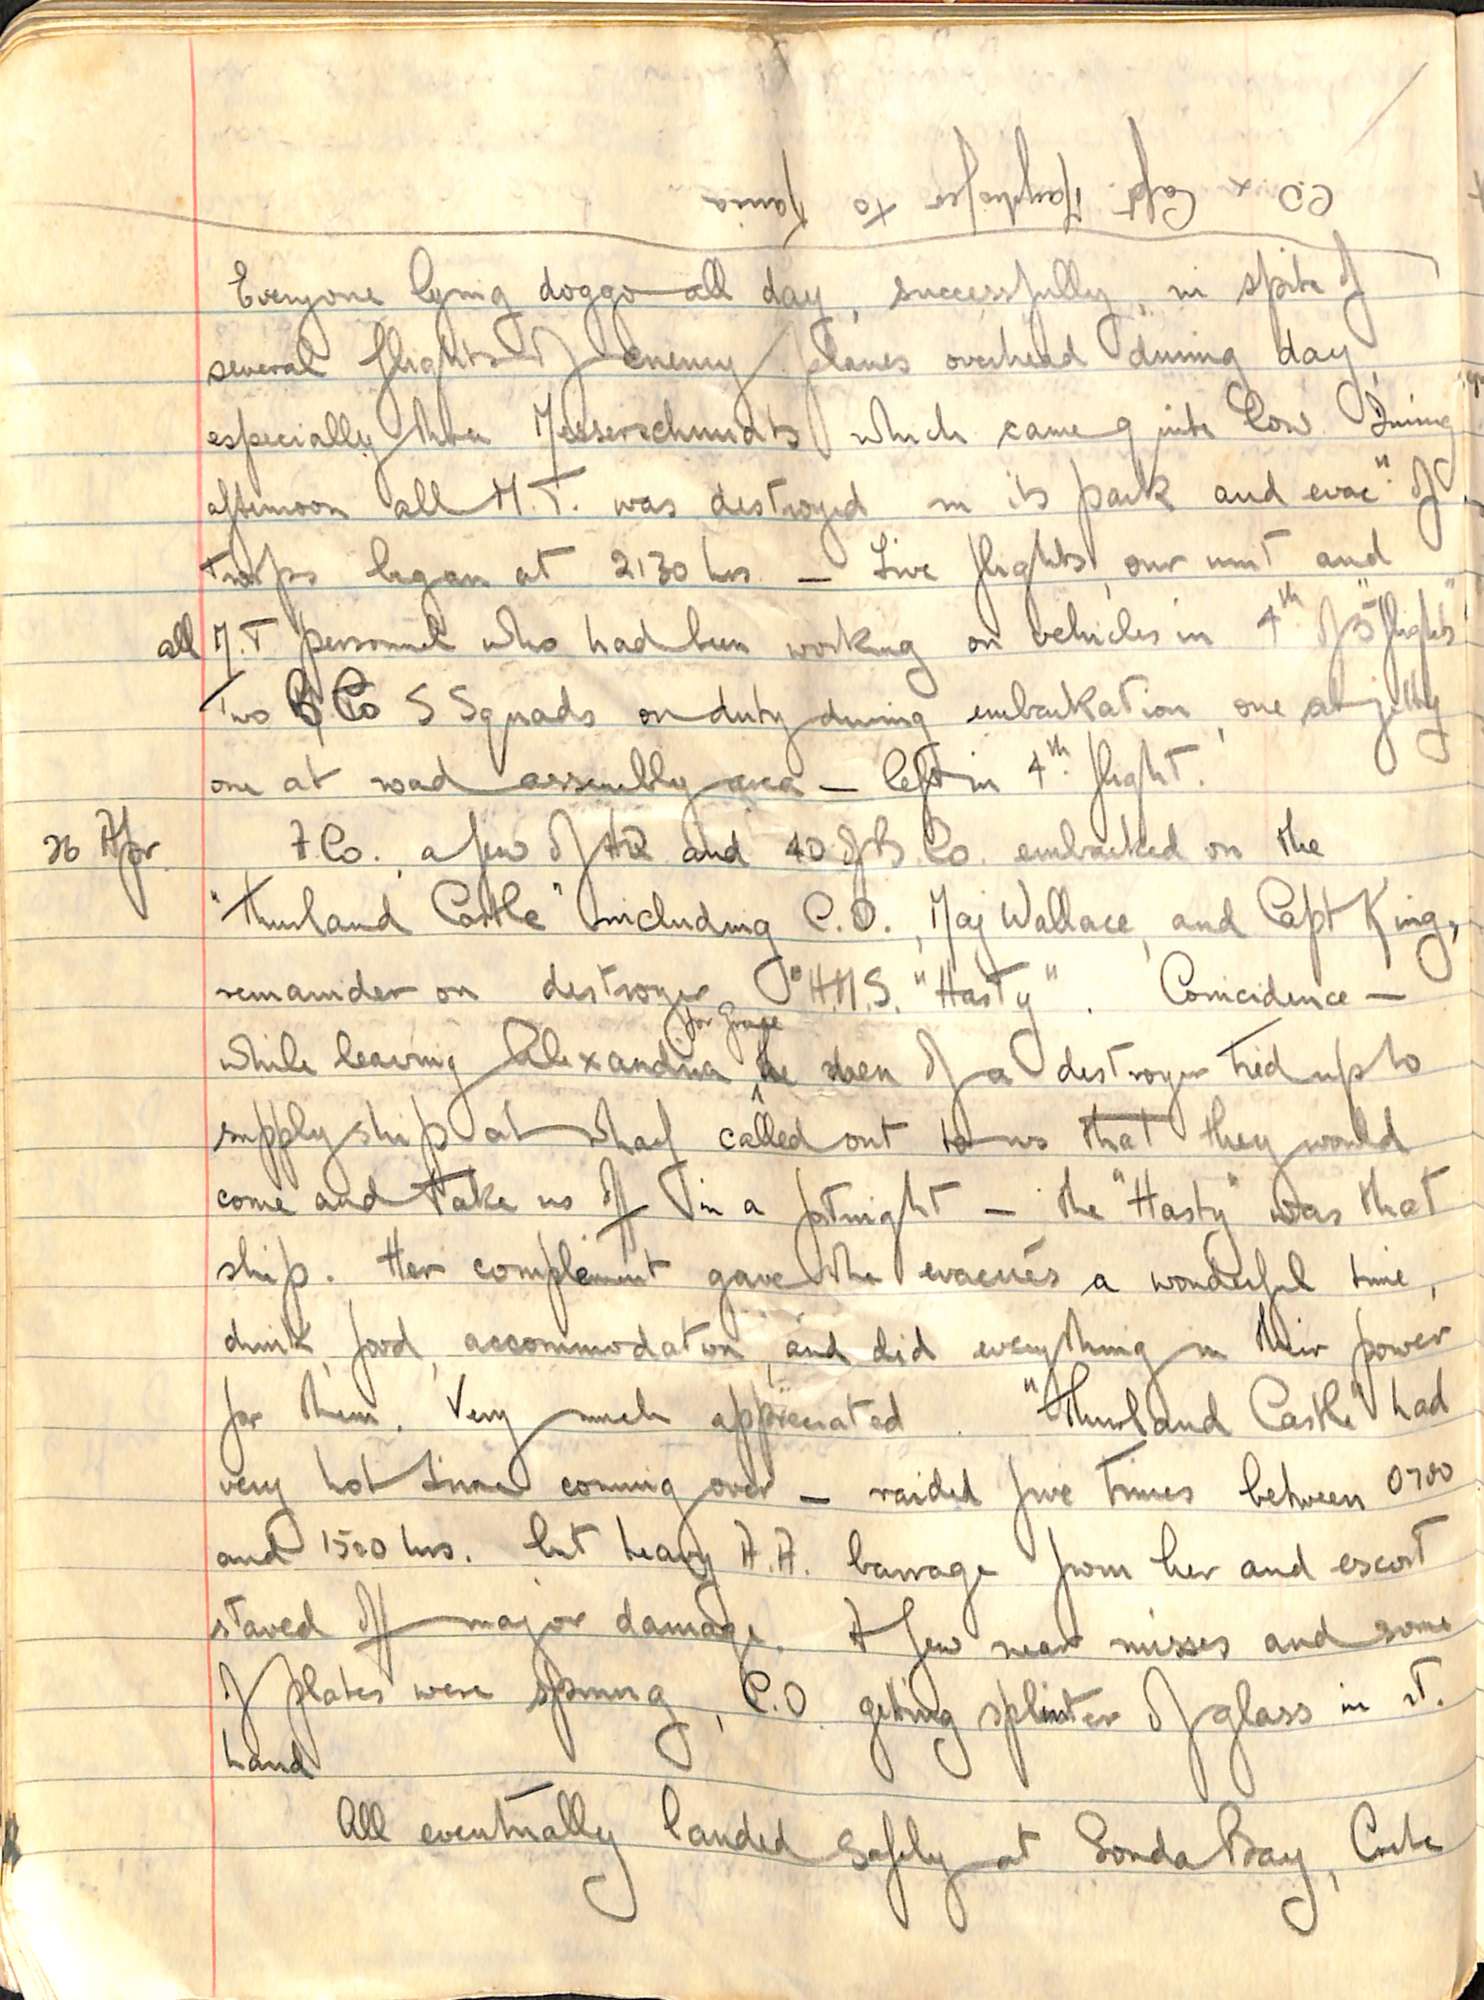 CO x Capt. to Kania
Everyone lying doggo all day, successfully, in spite of
several flights of enemy planes overhead during day,
especially three Messerschmidts which came quite low. During
afternoon all M.T. was destroyed in its park and evac" of
troops began at 2130 hrs — Five flights, our unit and
all M.T personnel who had been working on vehicles in 4th of 5 "flights"
Two B Co S Squads on duty during embarkation, one at jetty
one at road assembly area — left in 4th flight.
26 Apr. A Co., a few of HQ and 40 of B Co. embarked on the
"Thurland Castle" including C.O., Maj Wallace, and Capt King,
remainder on destroyer "H.M.S. "Hasty". Coincidence —
while leaving Alexandria for Greece the men of a destroyer tied up to
supply ship at wharf called out to us that they would
come and take us off in a fortnight — the "Hasty" was that
ship. Her complement gave the evacués a wonderful time,
drink, food, accommodation, and did everything in their power
for them. Very much appreciated. "Thurland Castle" had
very hot time coming over — raided five times between 0700
and 1500 hrs. but heavy A.A. barrage from her and escort
staved off major damage. A few near misses and some
of plates were sprung, C.O. getting splinter of glass in rt.
hand
All eventually landed safely at Souda Bay, Crete